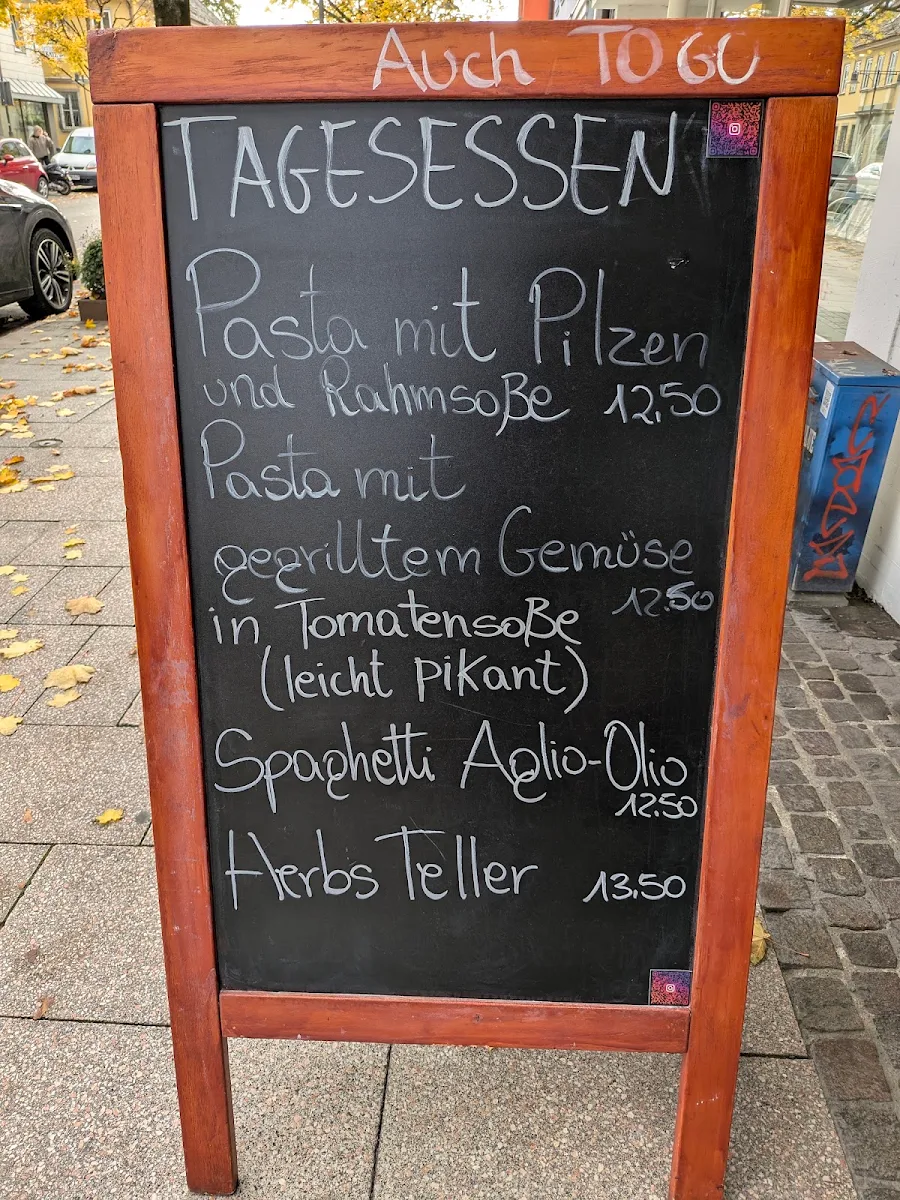 Auch TO GO
TAGESESSEN
Pasta mit Pilzen
und Rahmsoße 12,50
Pasta mit
gegrilltem Gemüse
12.50
in Tomatensoße
(leicht pikant)
Spaghetti Aglio-Olio
12.50
Herbs Teller 13.50